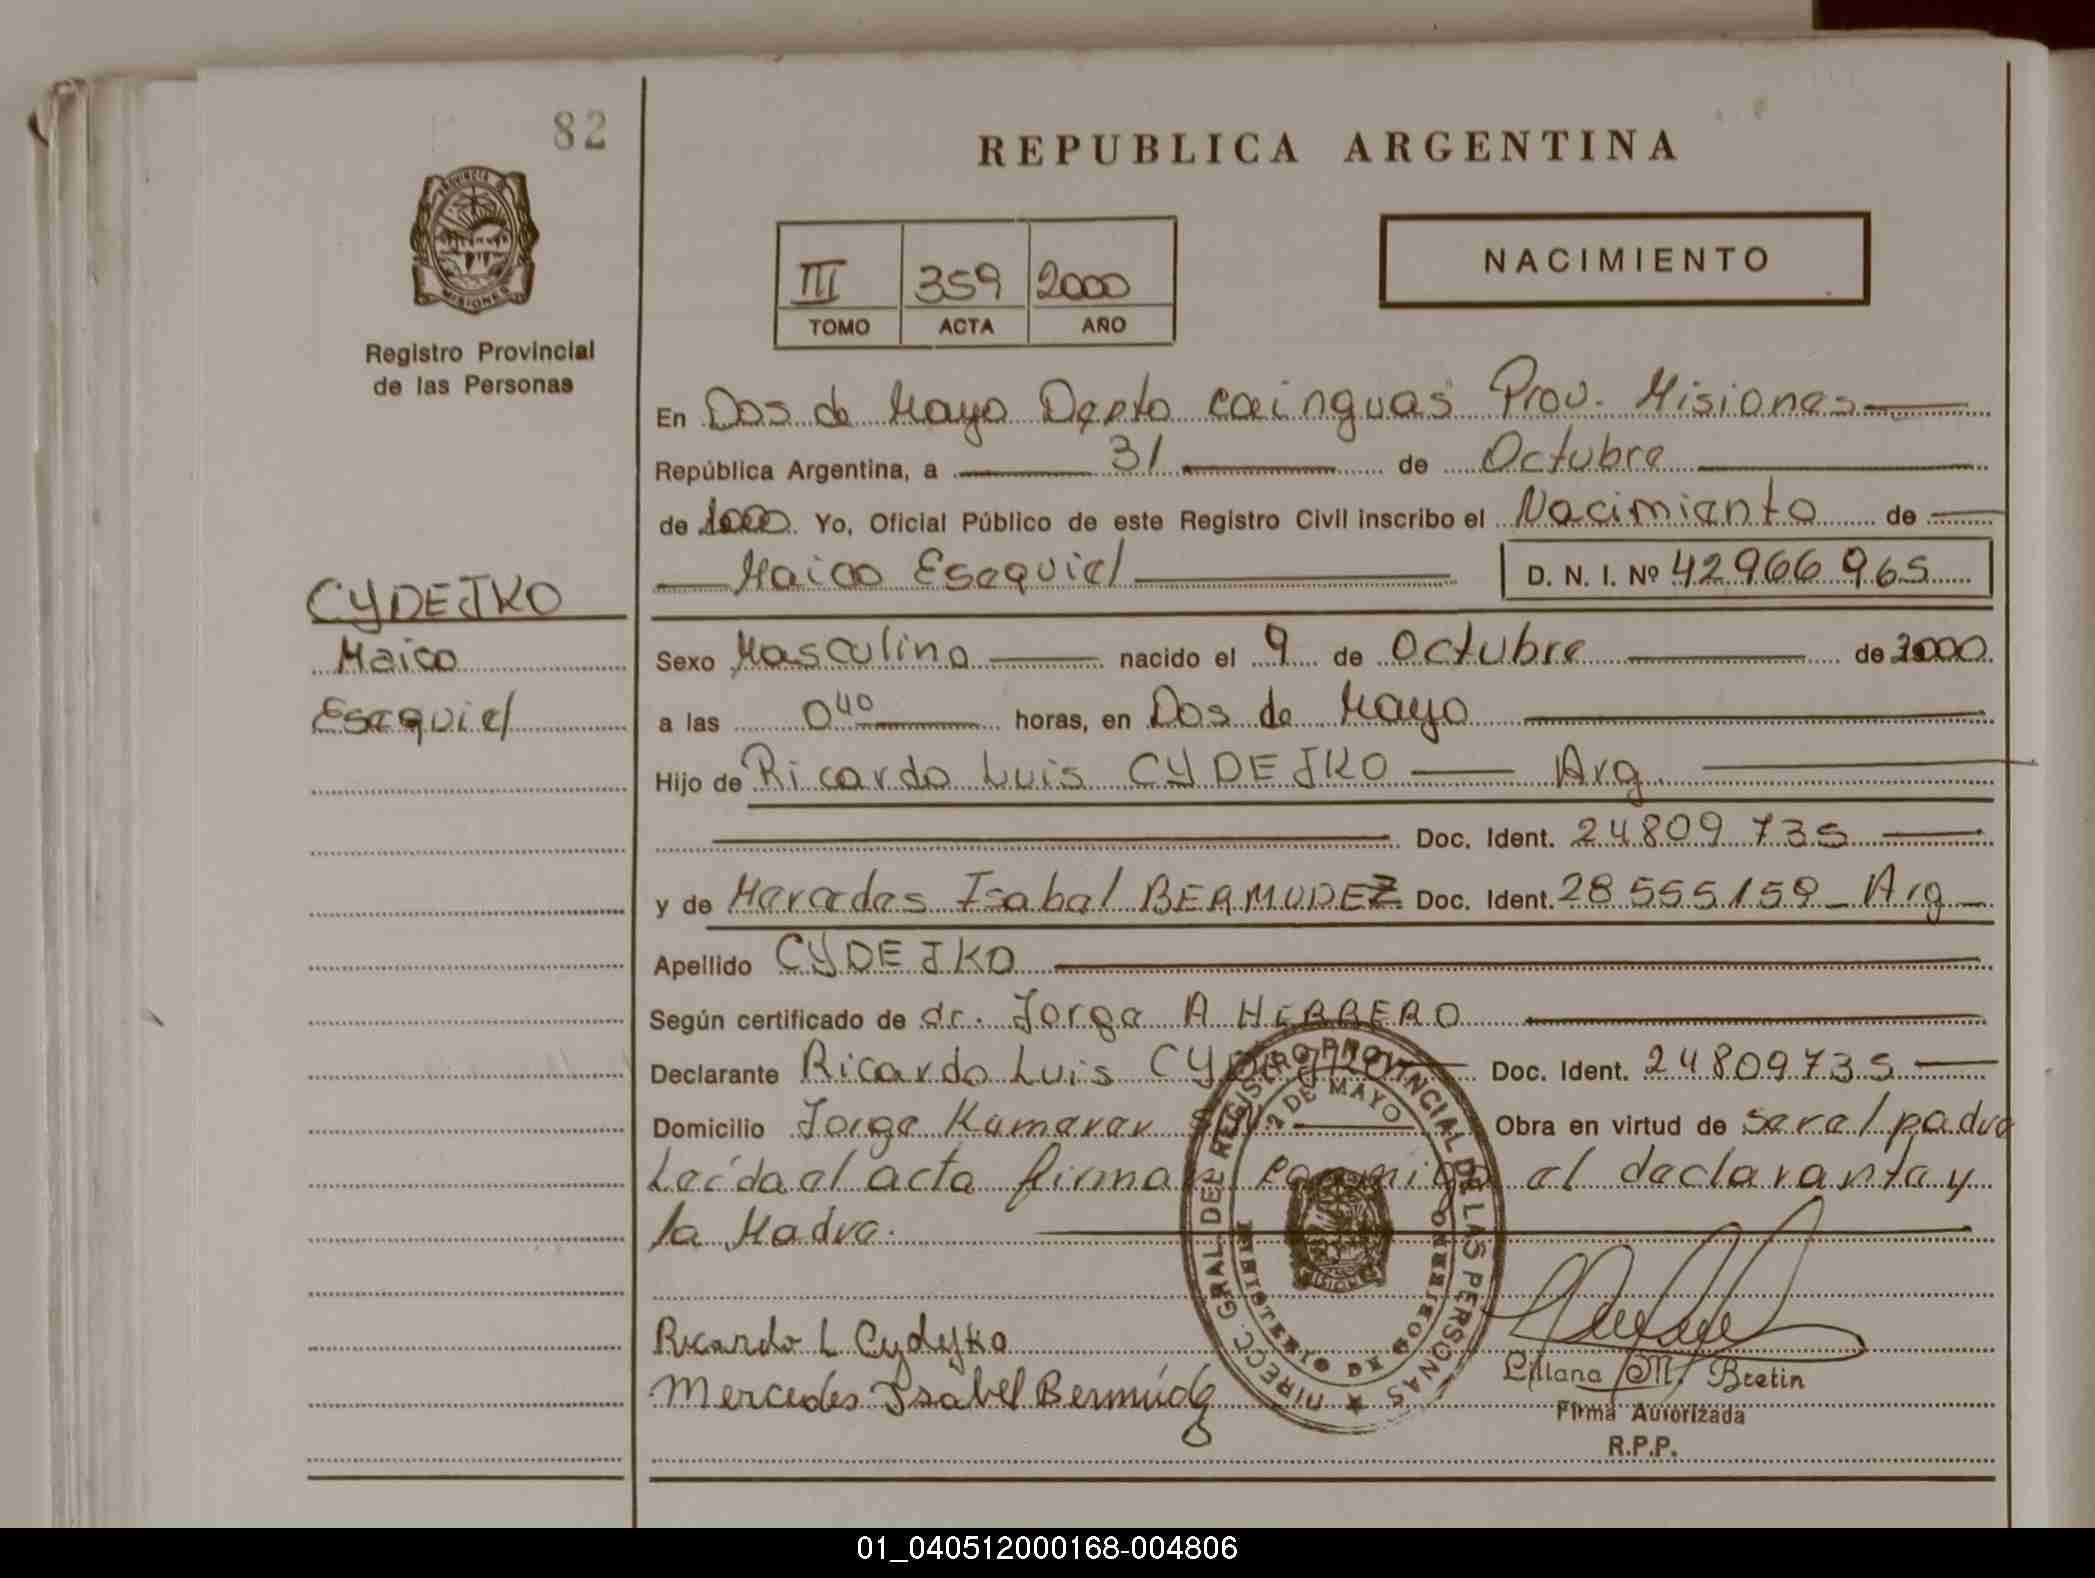 82
REPUBLICA ARGENTINA
PROVINCIA DE
MISIONES
Registro Provincial
de las Personas
III 359 2000
TOMO ACTA AÑO
NACIMIENTO
En Dos de Mayo Depto cainguas Prov. Misiones
República Argentina, a 31 de Octubre
de 2000. Yo, Oficial Público de este Registro Civil inscribo el Nacimiento de
Maico Esequiel D. N. I. Nº 42966965
CYDEJKO
Maico
Esequiel
Sexo Masculino nacido el 9 de Octubre de 2000
a las 0 40 horas, en Dos de Mayo
Hijo de Ricardo Luis CYDEJKO Arg
Doc. Ident. 24809735
y de Mercedes Isabel BERMUDEZ Doc. Ident. 28555159 Arg
Apellido CYDEJKO
Según certificado de dr. Jorge A HERRERO
Declarante Ricardo Luis Doc. Ident. 24809735
Domicilio Jorge Obra en virtud de ser el padre
Leída el acta firman conmigo el declarante y
la Madre.
DIRECC. GRAL. DEL REGISTRO PROVINCIAL DE LAS PERSONAS
2 DE MAYO
MINISTERIO DE GOBIERNO
MISIONES
Ricardo L Cydejko
Mercedes Isabel Bermúdez
Liliana M. Bretin
Firma Autorizada
R.P.P.
01_040512000168-004806